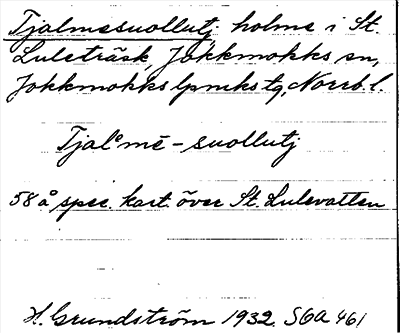 Tjalmesuollutj, holme i St.
Luleträsk, Jokkmokks sn,
Jokkmokks lpmks tg, Norrb. l.
Tjalᵒmē-suollutj
58 å spec. kart. över St. Lulevatten
H. Grundström 1932. SOA 461